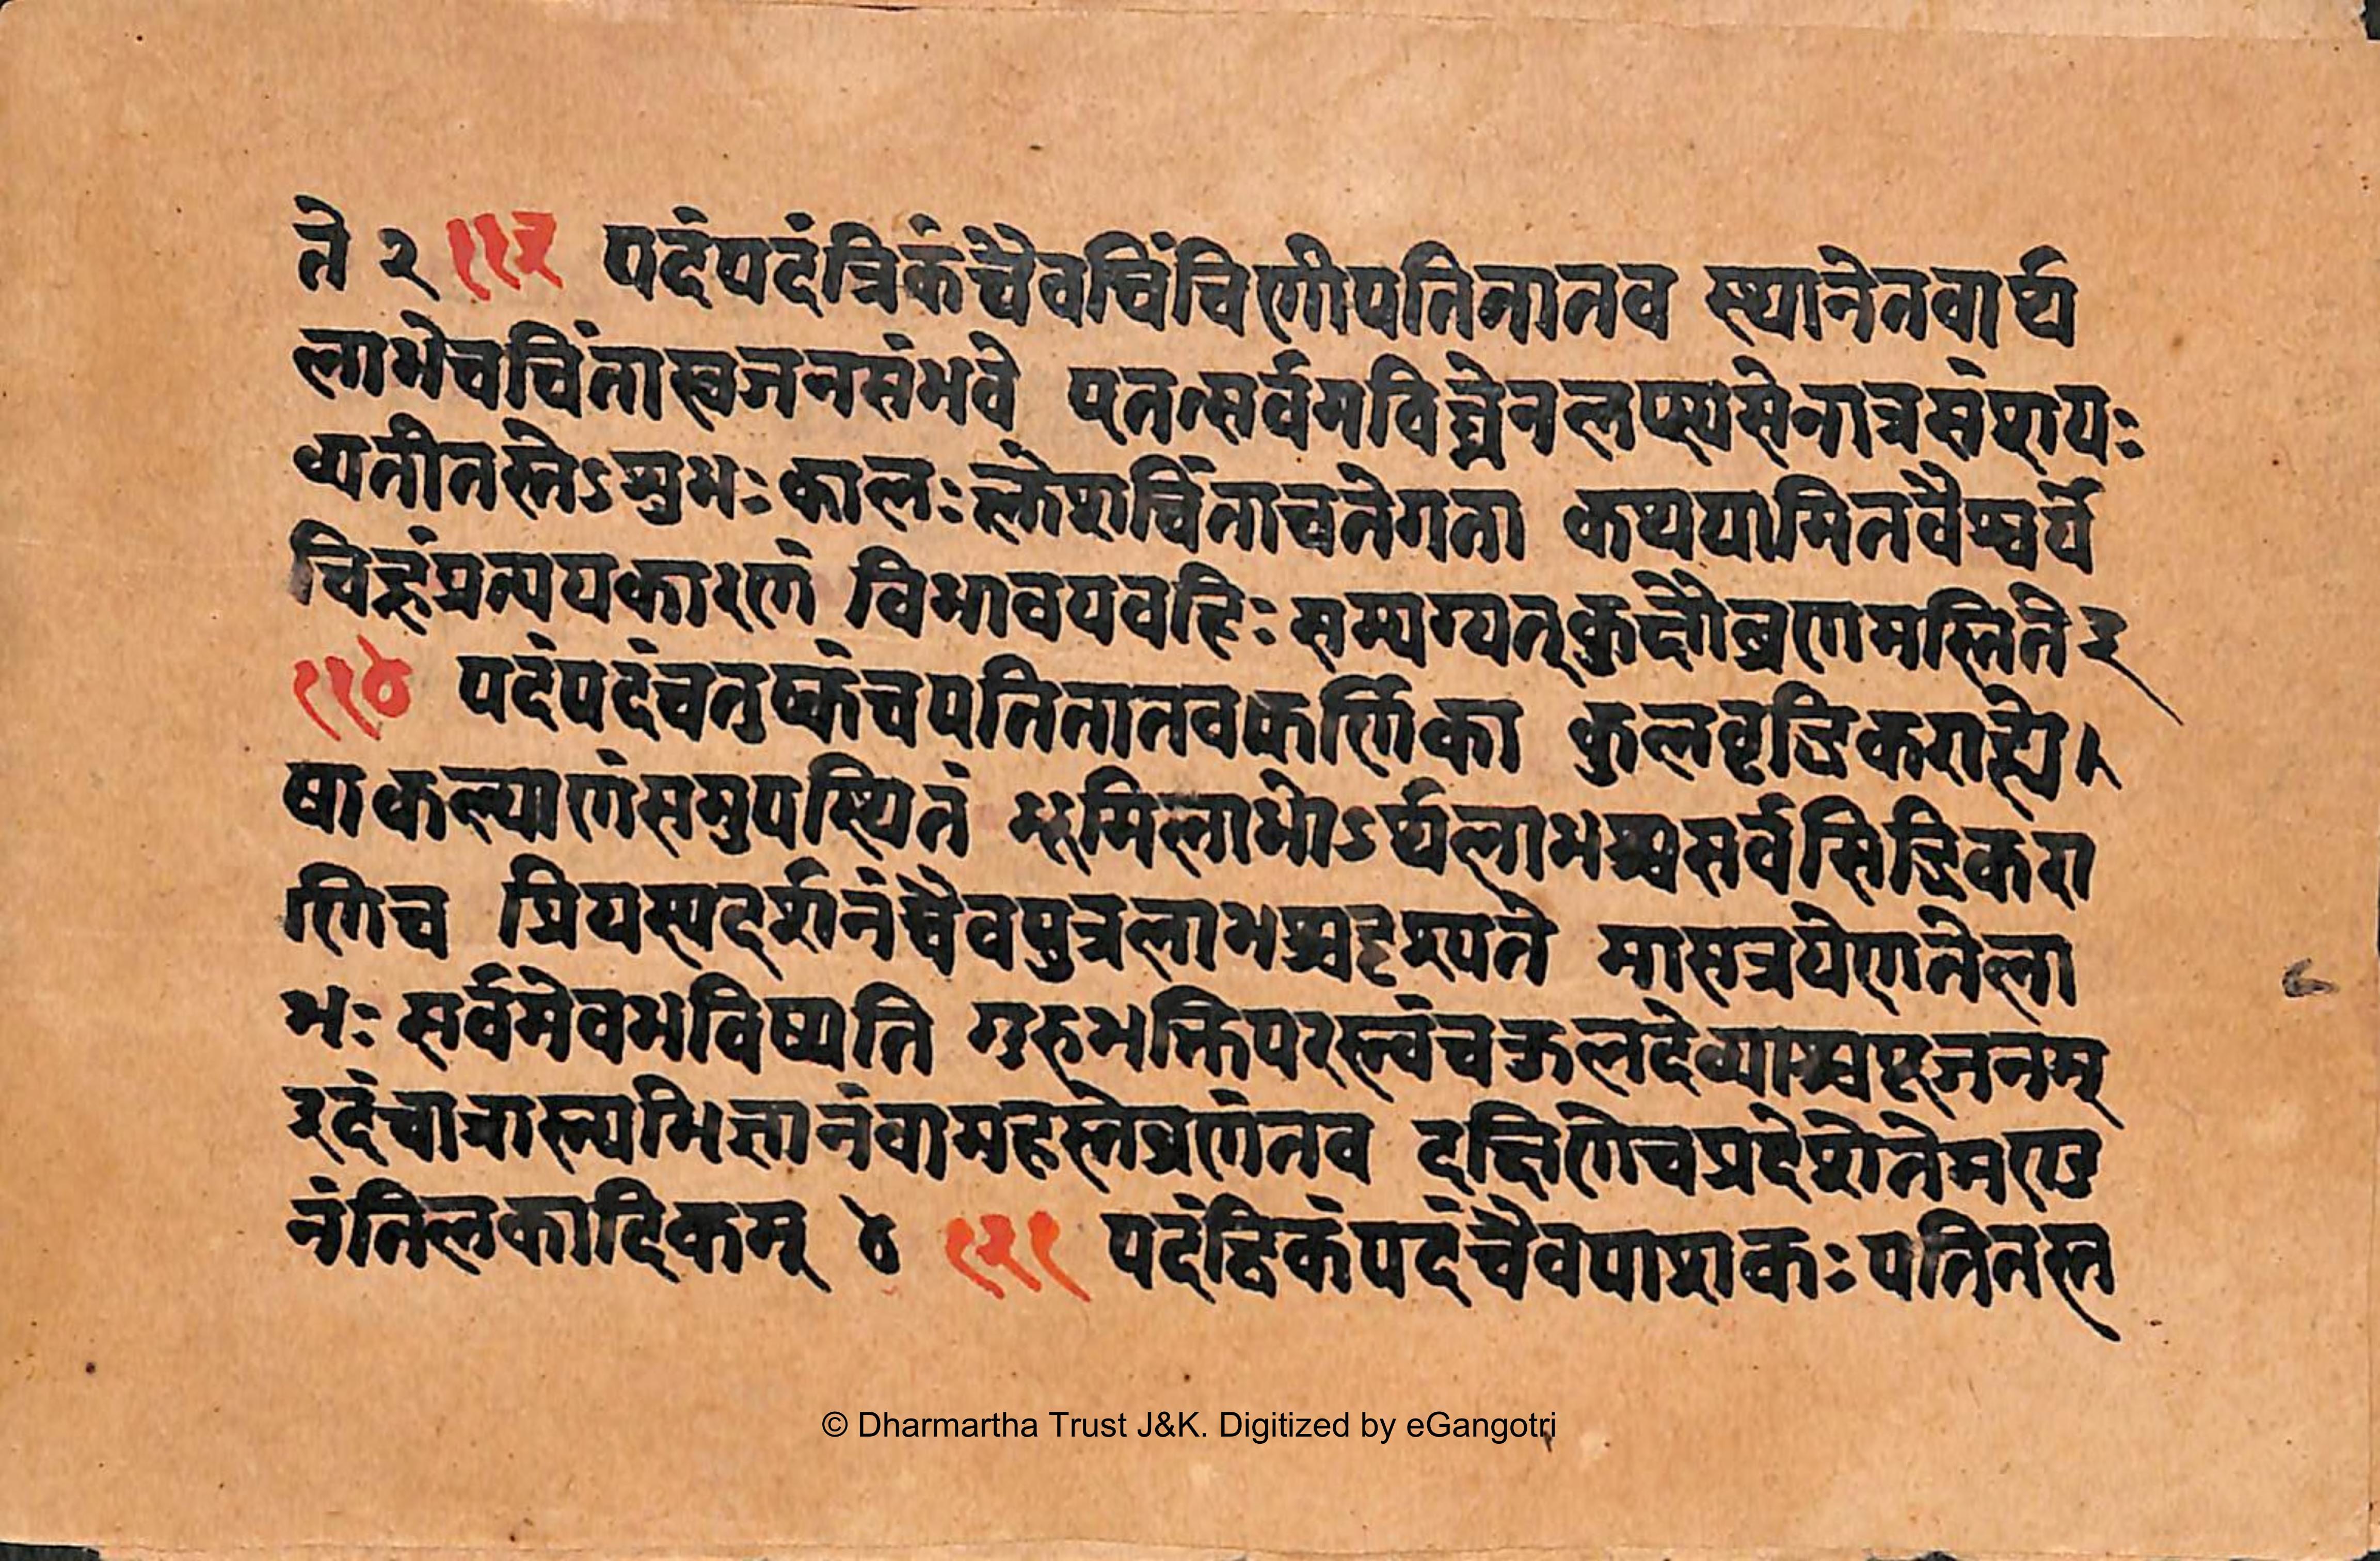 ते २ ११३ पदंपदंत्रिकंचैवचिंचिणीपतितातव स्थानेतवार्थ
लाभेचचिंतास्वजनसंभवे एतत्सर्वमविघ्नेनलप्स्यसेनात्रसंशयः
व्यतीतस्तेऽशुभःकालःक्लेशचिंताचतेगता कथयामितवैश्वर्यं
चिह्नंप्रत्ययकारणं विभावयवहिःसम्यग्यत्कुक्षौव्रणमस्तिते ३
११४ पदंपदंचतुष्कंचपतितातवकर्णिका कुलवृद्धिकराह्ये
षाकल्याणंसमुपस्थितं भूमिलाभोऽर्थलाभश्चसर्वसिद्धिकरा
णिच प्रियस्यदर्शनंचैवपुत्रलाभश्चदृश्यते मासत्रयेणतेला
भः सर्वमेवभविष्यति गुरुभक्तिपरस्त्वंचकुलदेव्याश्चपूजनम्
इदंचात्रास्त्यभिज्ञानंवामहस्तेव्रणंतव दक्षिणेचप्रदेशेतेमण्ड
नंतिलकादिकम् ४ १२१ पदंद्विकंपदंचैवपाशकःपतितस्त
© Dharmartha Trust J&K. Digitized by eGangotri